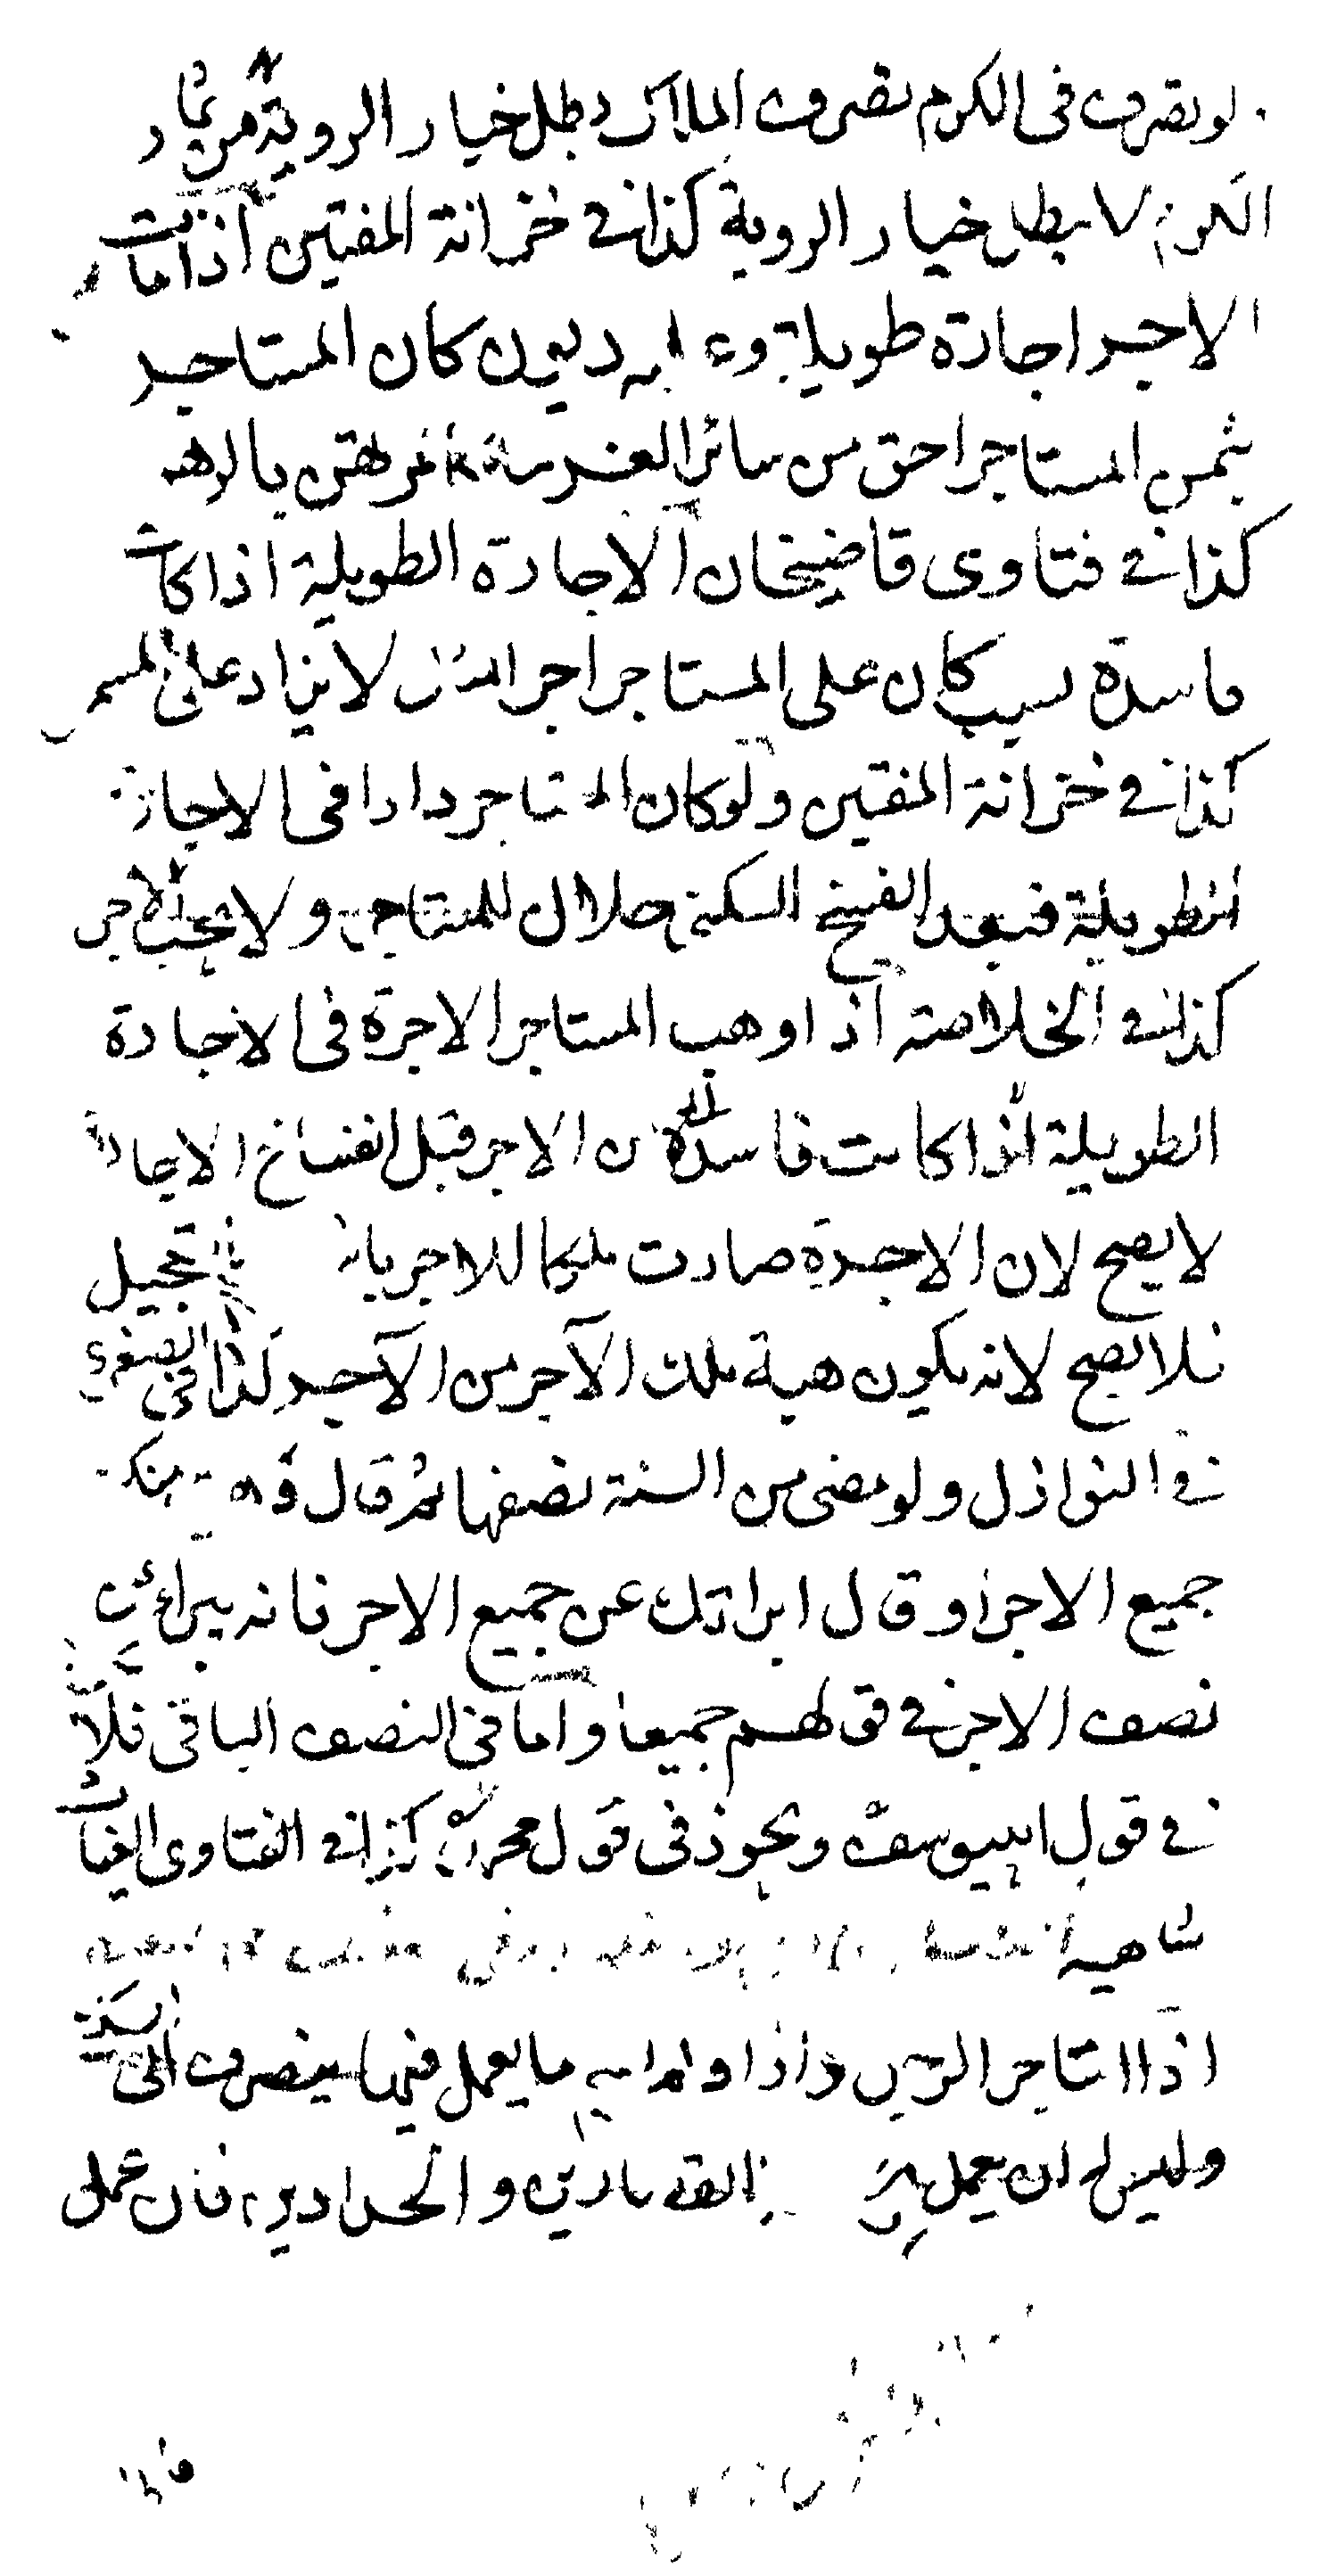 لو تصرف فى الكرم تصرف الملاك بطل خيار الروية من ثمار
الكرم لا يبطل خيار الروية كذا فى خزانة المفتين اذا مات
الاجر اجارة طويلة وعليه ديون كان المستاجر
بثمن المستاجر احق من سائر الغرماء كالمرتهن بالرهن
كذا فى فتاوى قاضيخان الاجارة الطويلة اذا كانت
فاسدة كان على المستاجر اجر المثل لا يزاد على المسمى
كذا فى خزانة المفتين ولو كان المستاجر دارا فى الاجارة
الطويلة فبعد الفسخ السكنى حلال للمستاجر ولا يجب الاجر
كذا فى الخلاصة اذا وهب المستاجر الاجرة فى الاجارة
الطويلة اذا كانت فاسدة من الاجر قبل انفساخ الاجارة
لا يصح لان الاجرة صارت ملكا للاجر تعجيل
فلا يصح لانه يكون هبة ملك الآجر من الآجر كذا فى الصغرى
فى النوازل ولو مضى من السنة نصفها ثم قال منك
جميع الاجر او قال ابراتك عن جميع الاجر فانه يبرا عن
نصف الاجر فى قولهم جميعا واما فى النصف الباقى فلا
فى قول ابيوسف ويجوز فى قول محمد كذا فى الفتاوى الغياث
شاهية
اذا استاجر ما يعمل فيها ينصرف الى السكنى
وليس له ان يعمل القصارين والحدادين فان عمل